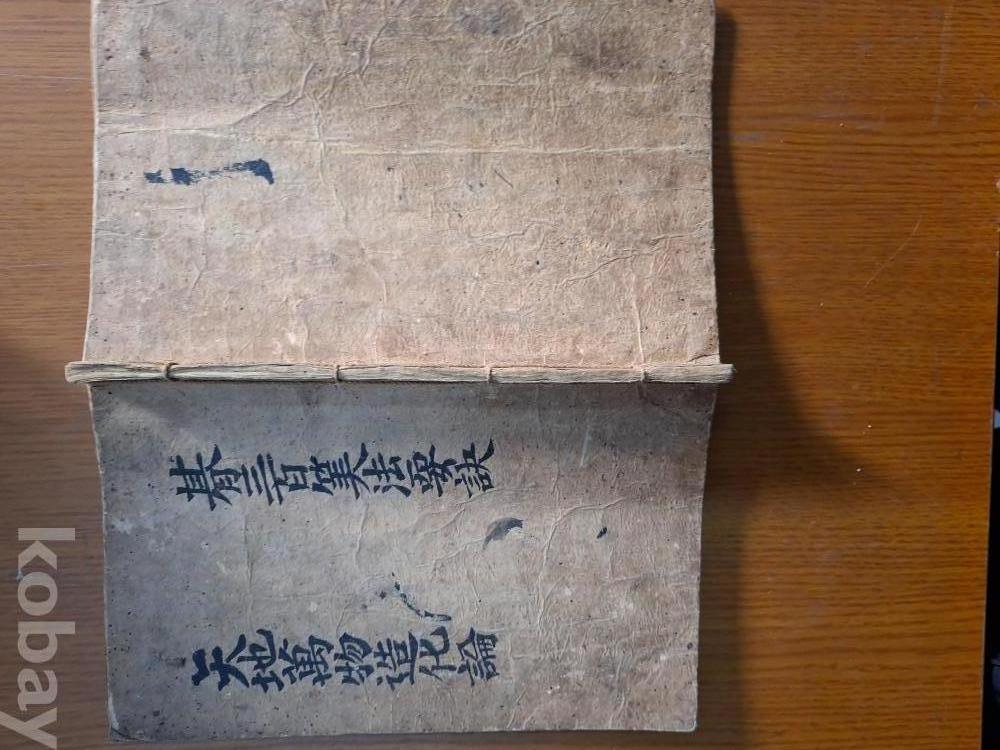 朞三百筭法要訣
天地萬物造化論
kobay